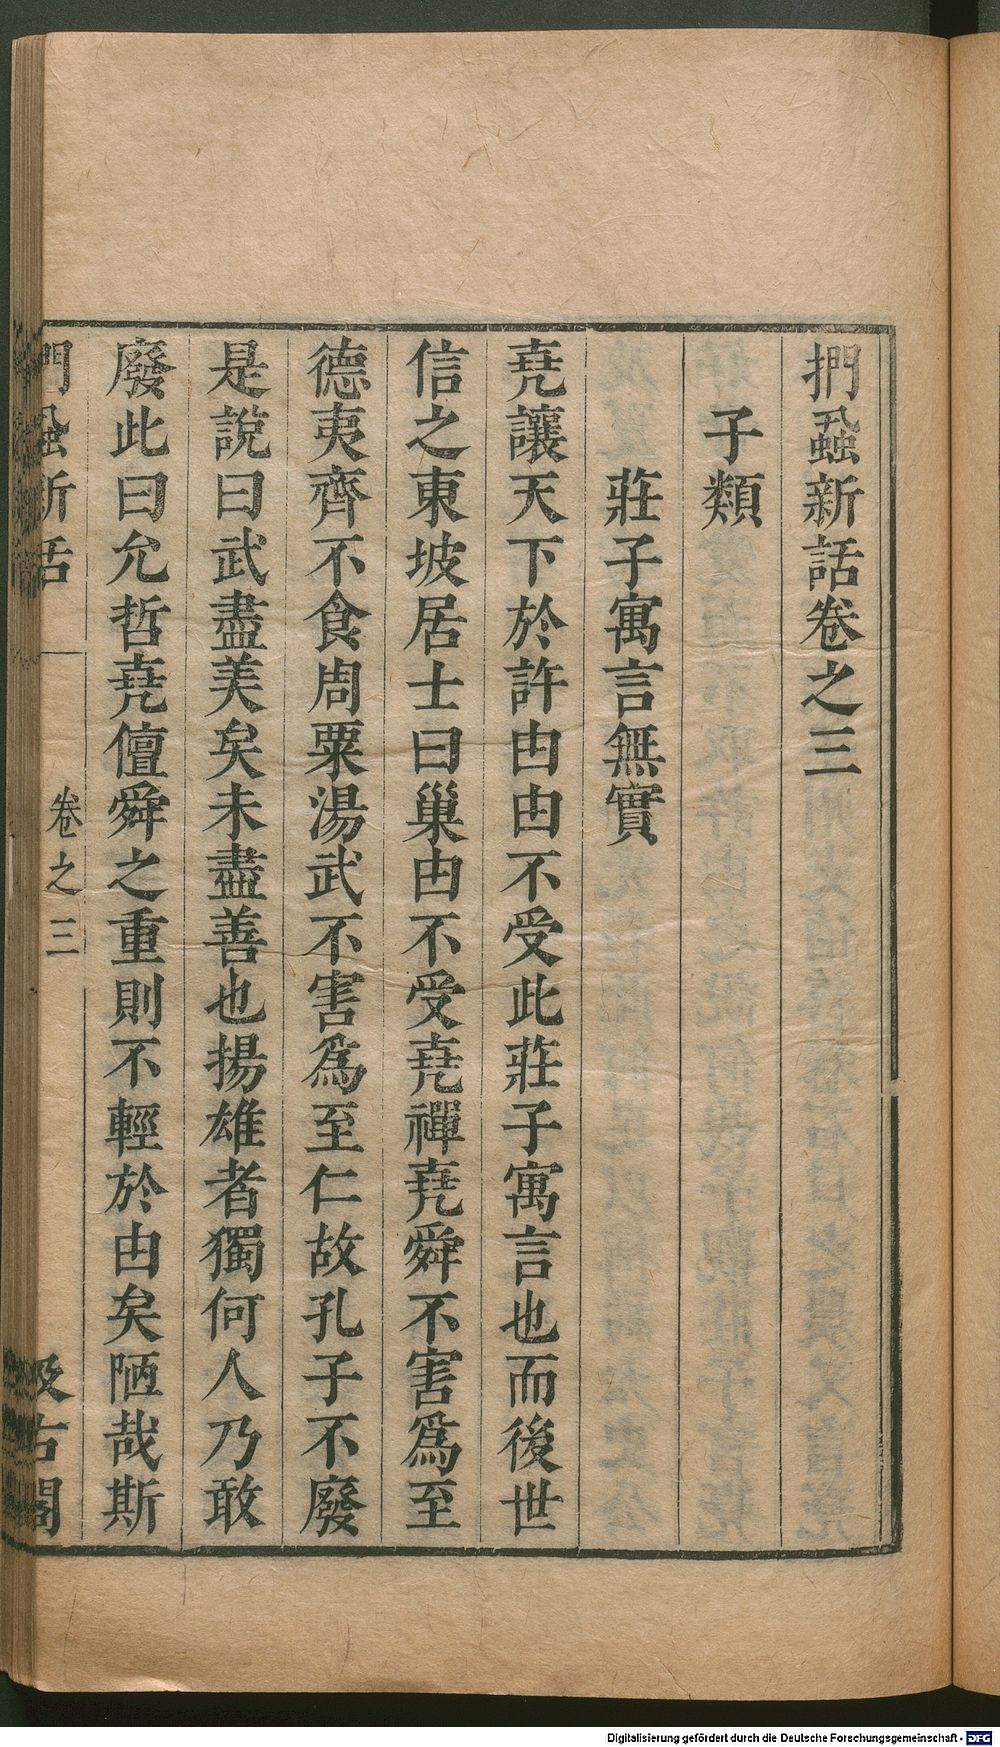 捫蝨新話卷之三
子類
莊子寓言無實
堯讓天下於許由由不受此莊子寓言也而後世
信之東坡居士曰巢由不受堯禪堯舜不害爲至
德夷齊不食周粟湯武不害爲至仁故孔子不廢
是說曰武盡美矣未盡善也揚雄者獨何人乃敢
廢此曰允哲堯儃舜之重則不輕於由矣陋哉斯
捫蝨新話 卷之三 汲古閣
Digitalisierung gefördert durch die Deutsche Forschungsgemeinschaft - DFG